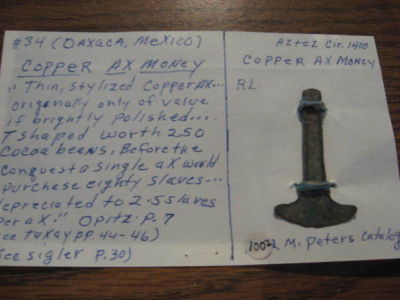 #34 (OAXACA, MEXICO)
COPPER AX MONEY
"Thin, stylized Copper AX...
originally only of value
if brightly polished....
T shaped worth 250
Cocoa beens. Before the
Conquest a single ax would
purchase eighty slaves-..
depreciated to 2.5 slaves
per ax." Opitz P. 7
See taxay PP. 44-46)
See sigler P. 30)
Aztec Cir. 1400
COPPER AX MONEY
RL
M. Peters Catalog